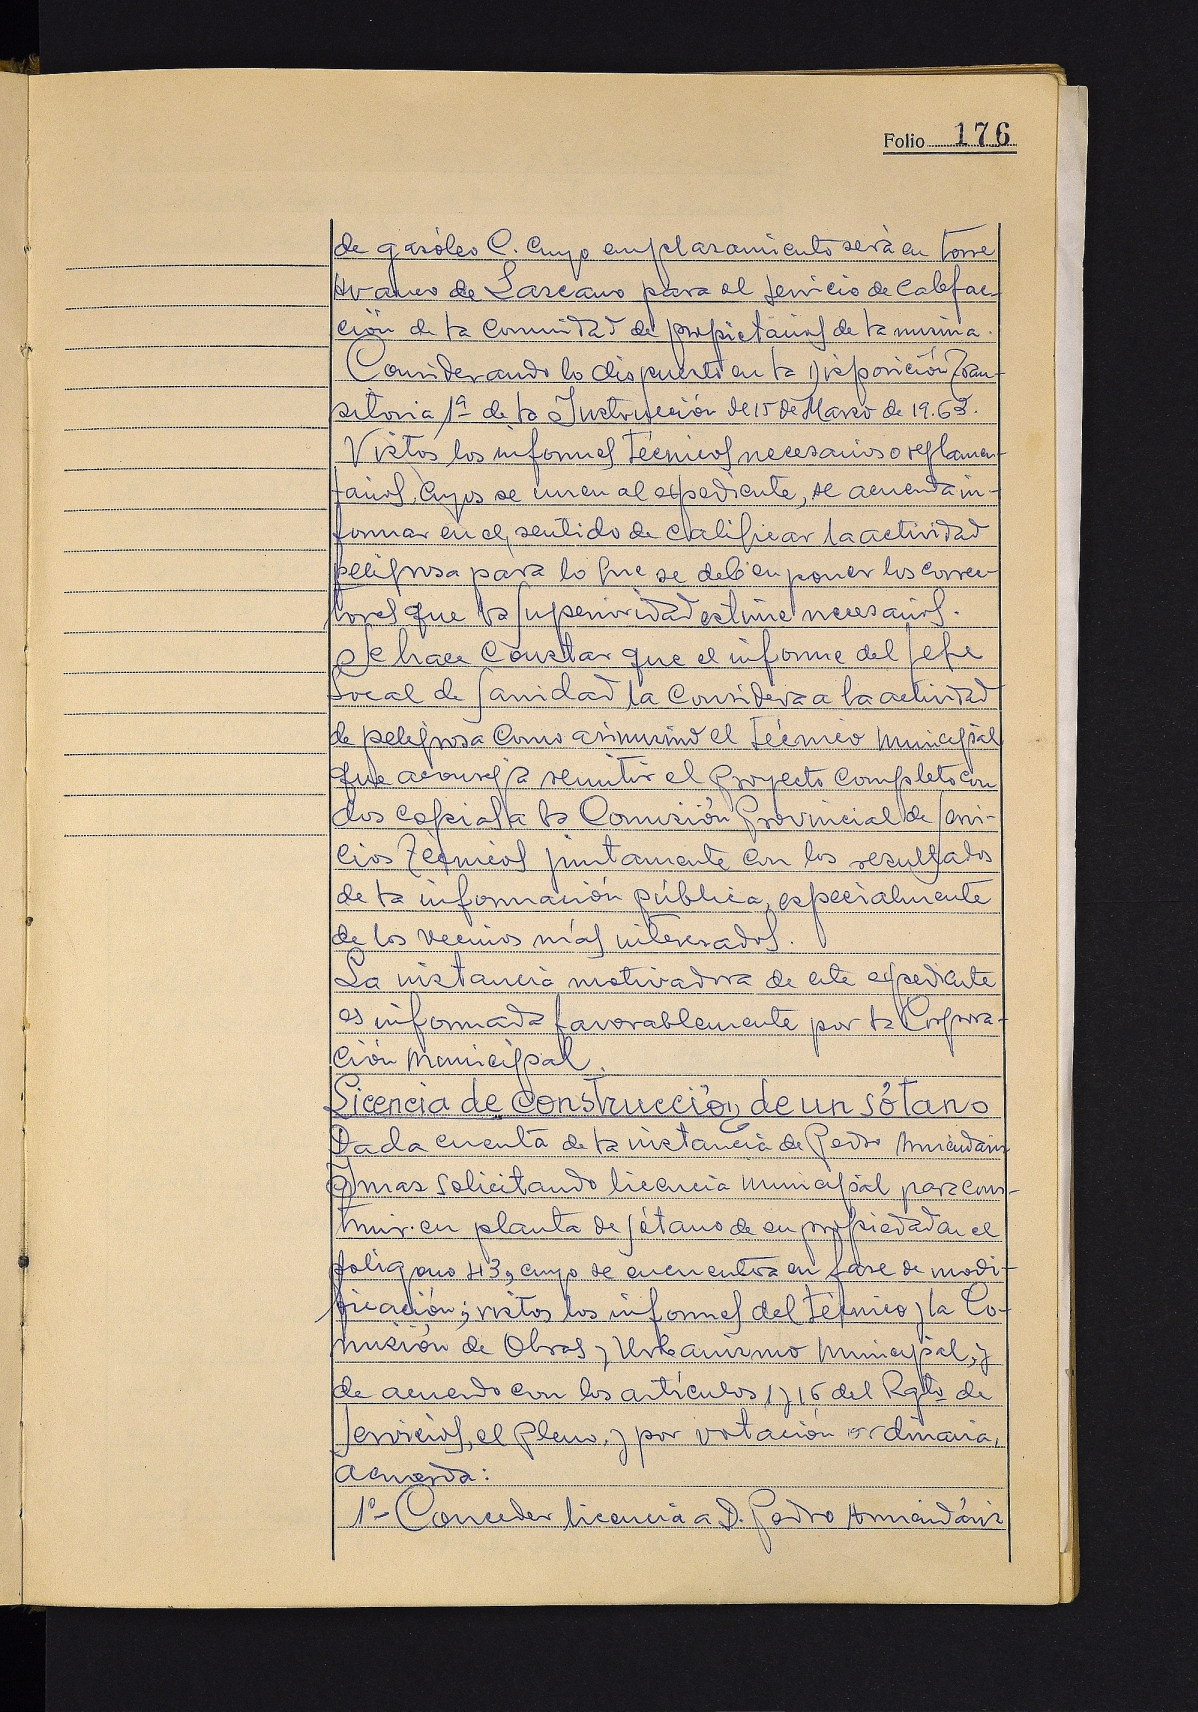 Folio 176
de gasóleo C. cuyo emplazamiento será en torre
de Lazcano para el servicio de Calefac-
ción de la comunidad de propietarios de la misma.
Considerando lo dispuesto en la Disposición Tran-
sitoria 1ª de la Instrucción de 15 de Marzo de 19.63.
Vistos los informes técnicos necesarios o reglamen-
tarios, cuyos se unen al expediente, se acuerda in-
formar en el sentido de calificar la actividad
peligrosa para lo que se deben poner los correc-
tores que la Superioridad estime necesarios.
Se hace constar que el informe del Jefe
Local de Sanidad la considera a la actividad
de peligrosa como asimismo el técnico municipal
que aconseja remitir el Proyecto completo con
dos copias a la Comisión Provincial de Servi-
cios Técnicos juntamente con los resultados
de la información pública, especialmente
de los vecinos más interesados.
La instancia motivadora de este expediente
es informada favorablemente por la Corpora-
ción municipal.
Licencia de construcción de un sótano
Dada cuenta de la instancia de Pedro Armendáriz
solicitando licencia municipal para cons-
truir en planta de sótano de su propiedad en el
polígono 43, cuyo se encuentra en fase de modi-
ficación; vistos los informes del técnico y la Co-
misión de Obras y Urbanismo municipal, y
de acuerdo con los artículos 1 y 16 del Rgto de
Servicios, el Pleno, y por votación ordinaria,
acuerda:
1º- Conceder licencia a D. Pedro Armendáriz